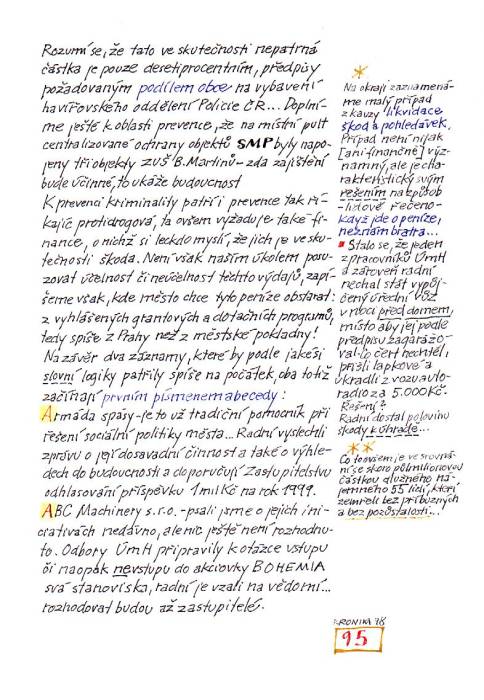 Rozumí se, že tato ve skutečnosti nepatrná
částka je pouze desetiprocentním, předpisy
požadovaným podílem obce na vybavení
havířovského oddělení Policie ČR... Doplní-
me ještě k oblasti prevence, že na místní pult
centralizované ochrany objektů SMP byly napo-
jeny tři objekty ZUŠ B. Martinů - zda zajištění
bude účinné, to ukáže budoucnost
K prevenci kriminality patří i prevence tak ří-
kajíc protidrogová, ta ovšem vyžaduje také fi-
nance, o nichž si leckdo myslí, že jich je ve sku-
tečnosti škoda. Není však naším úkolem posu-
zovat účelnost či neúčelnost těchto výdajů, zapí-
šeme však, kde město chce tyto peníze obstarat:
z vyhlášených grantových a dotačních programů,
tedy spíše z Prahy než z městské pokladny!
Na závěr dva záznamy, které by podle jakési
slovní logiky patřily spíše na počátek, oba totiž
začínají prvním písmenem abecedy:
Armáda spásy - je to už tradiční pomocník při
řešení sociální politiky města... Radní vyslechli
zprávu o její dosavadní činnost a také o výhle-
dech do budoucnosti a doporučují Zastupitelstvu
odhlasování příspěvku 1 mil Kč na rok 1999.
ABC Machinery s.r.o. - psali jsme o jejich ini-
ciativách nedávno, ale nic ještě není rozhodnu-
to. Odbory ÚmH připravily k otázce vstupu
či naopak nevstupu do akciovky BOHEMIA
svá stanoviska, radní je vzali na vědomí...
rozhodovat budou až zastupitelé.
Na okraji zaznamená-
me malý případ
z kauzy likvidace
škod a pohledávek.
Případ není nijak
[ani finančně] výz-
namný, ale je cha-
rakteristický svým
řešením na způsob
-lidově řečeno-
když jde o peníze,
neznám bratra...
Stalo se, že jeden
z pracovníků ÚmH
a zároveň radní
nechal stát vypůj-
čený úřední vůz
v noci před domem,
místo aby jej podle
předpisu zagarážo-
val - co čert nechtěl,
přišli lapkové a
ukradli z vozu auto-
radio za 5.000 Kč.
Řešení?
Radní dostal polovinu
škody k úhradě...
Co to ovšem je ve srovná-
ní se skoro půlmilionovou
částkou dlužného ná-
jemného 55 lidí, kteří
zemřeli bez příbuzných
a bez pozůstalosti...!
KRONIKA 98
95